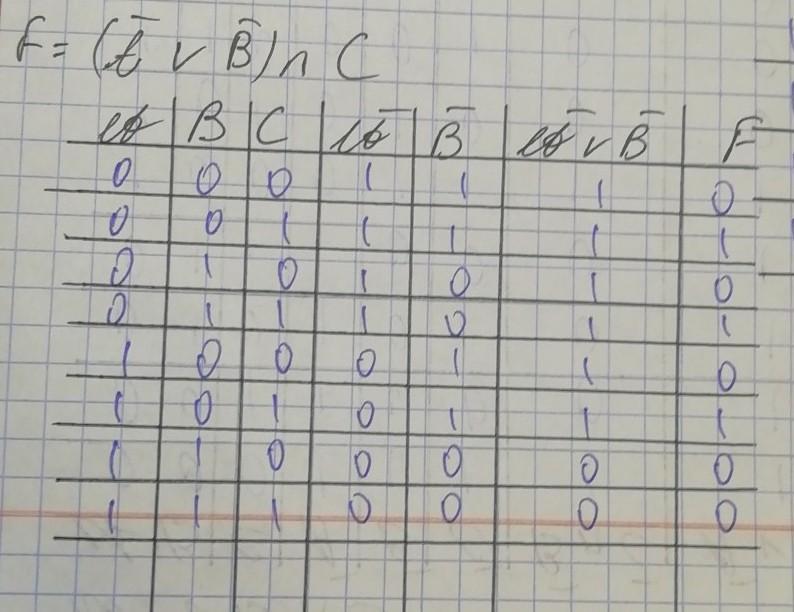 F = (Ā v B̄) ∧ C
A B C Ā B̄ Ā v B̄ F
0 0 0 1 1 1 0
0 0 1 1 1 1 1
0 1 0 1 0 1 0
0 1 1 1 0 1 1
1 0 0 0 1 1 0
1 0 1 0 1 1 1
1 1 0 0 0 0 0
1 1 1 0 0 0 0